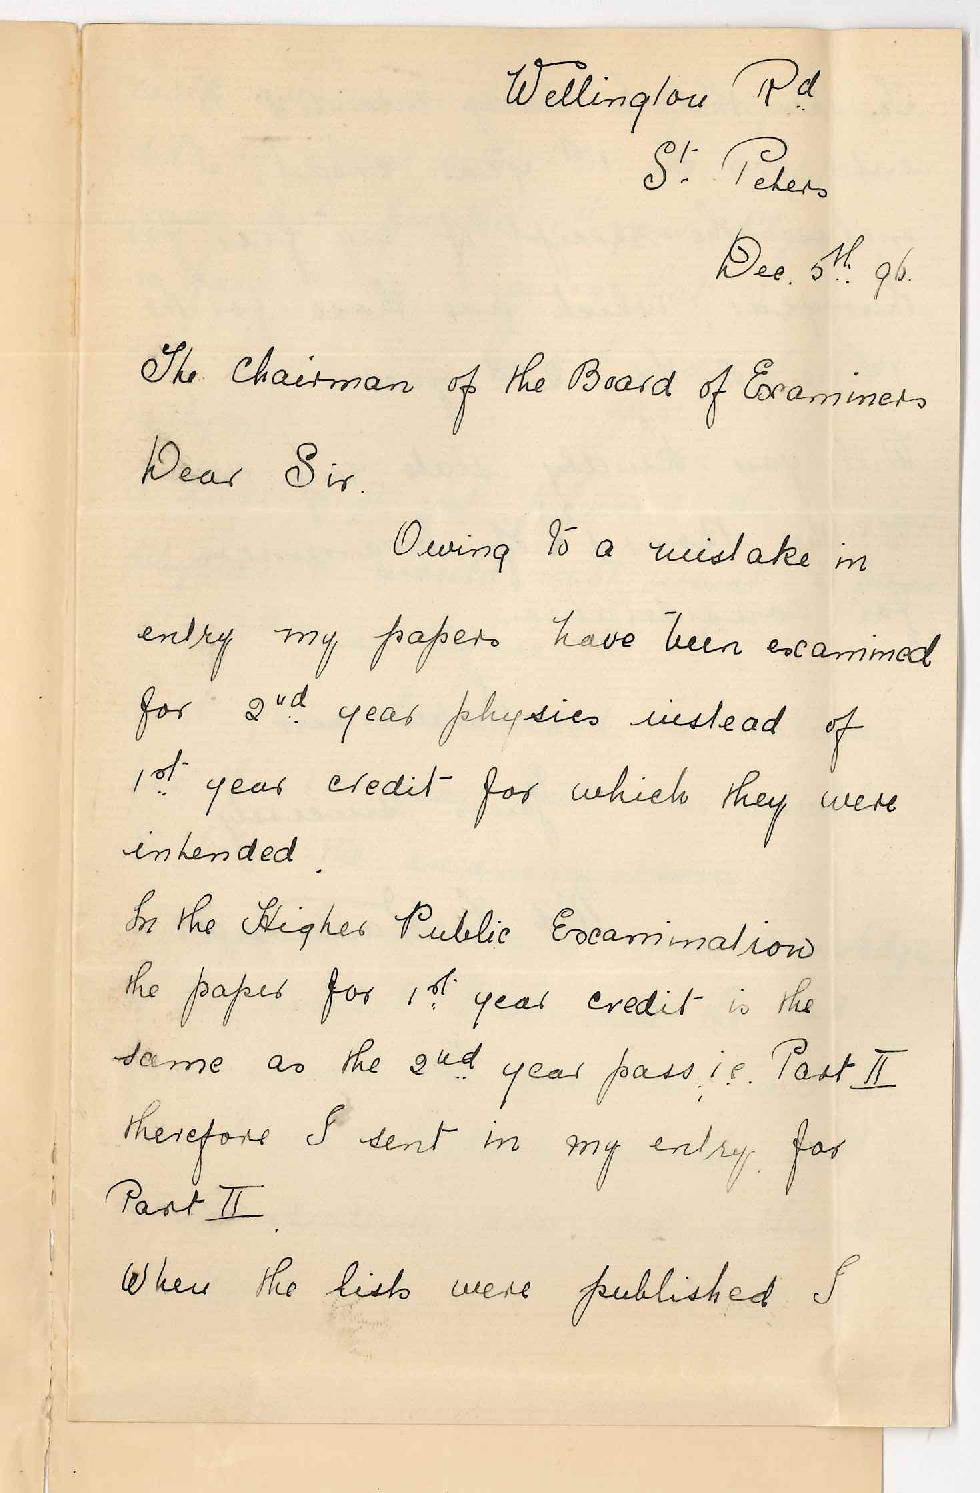 Wellington Rd
St. Peters
Dec. 5th. 96.
The Chairman of the Board of Examiners
Dear Sir.
Owing to a mistake in
entry my papers have been examined
for 2nd. year physics instead of
1st. year credit for which they were
intended.
In the Higher Public Examination
the paper for 1st. year credit is the
same as the 2nd. year pass, i.e. Part II
therefore I sent in my entry for
Part II.
When the lists were published I